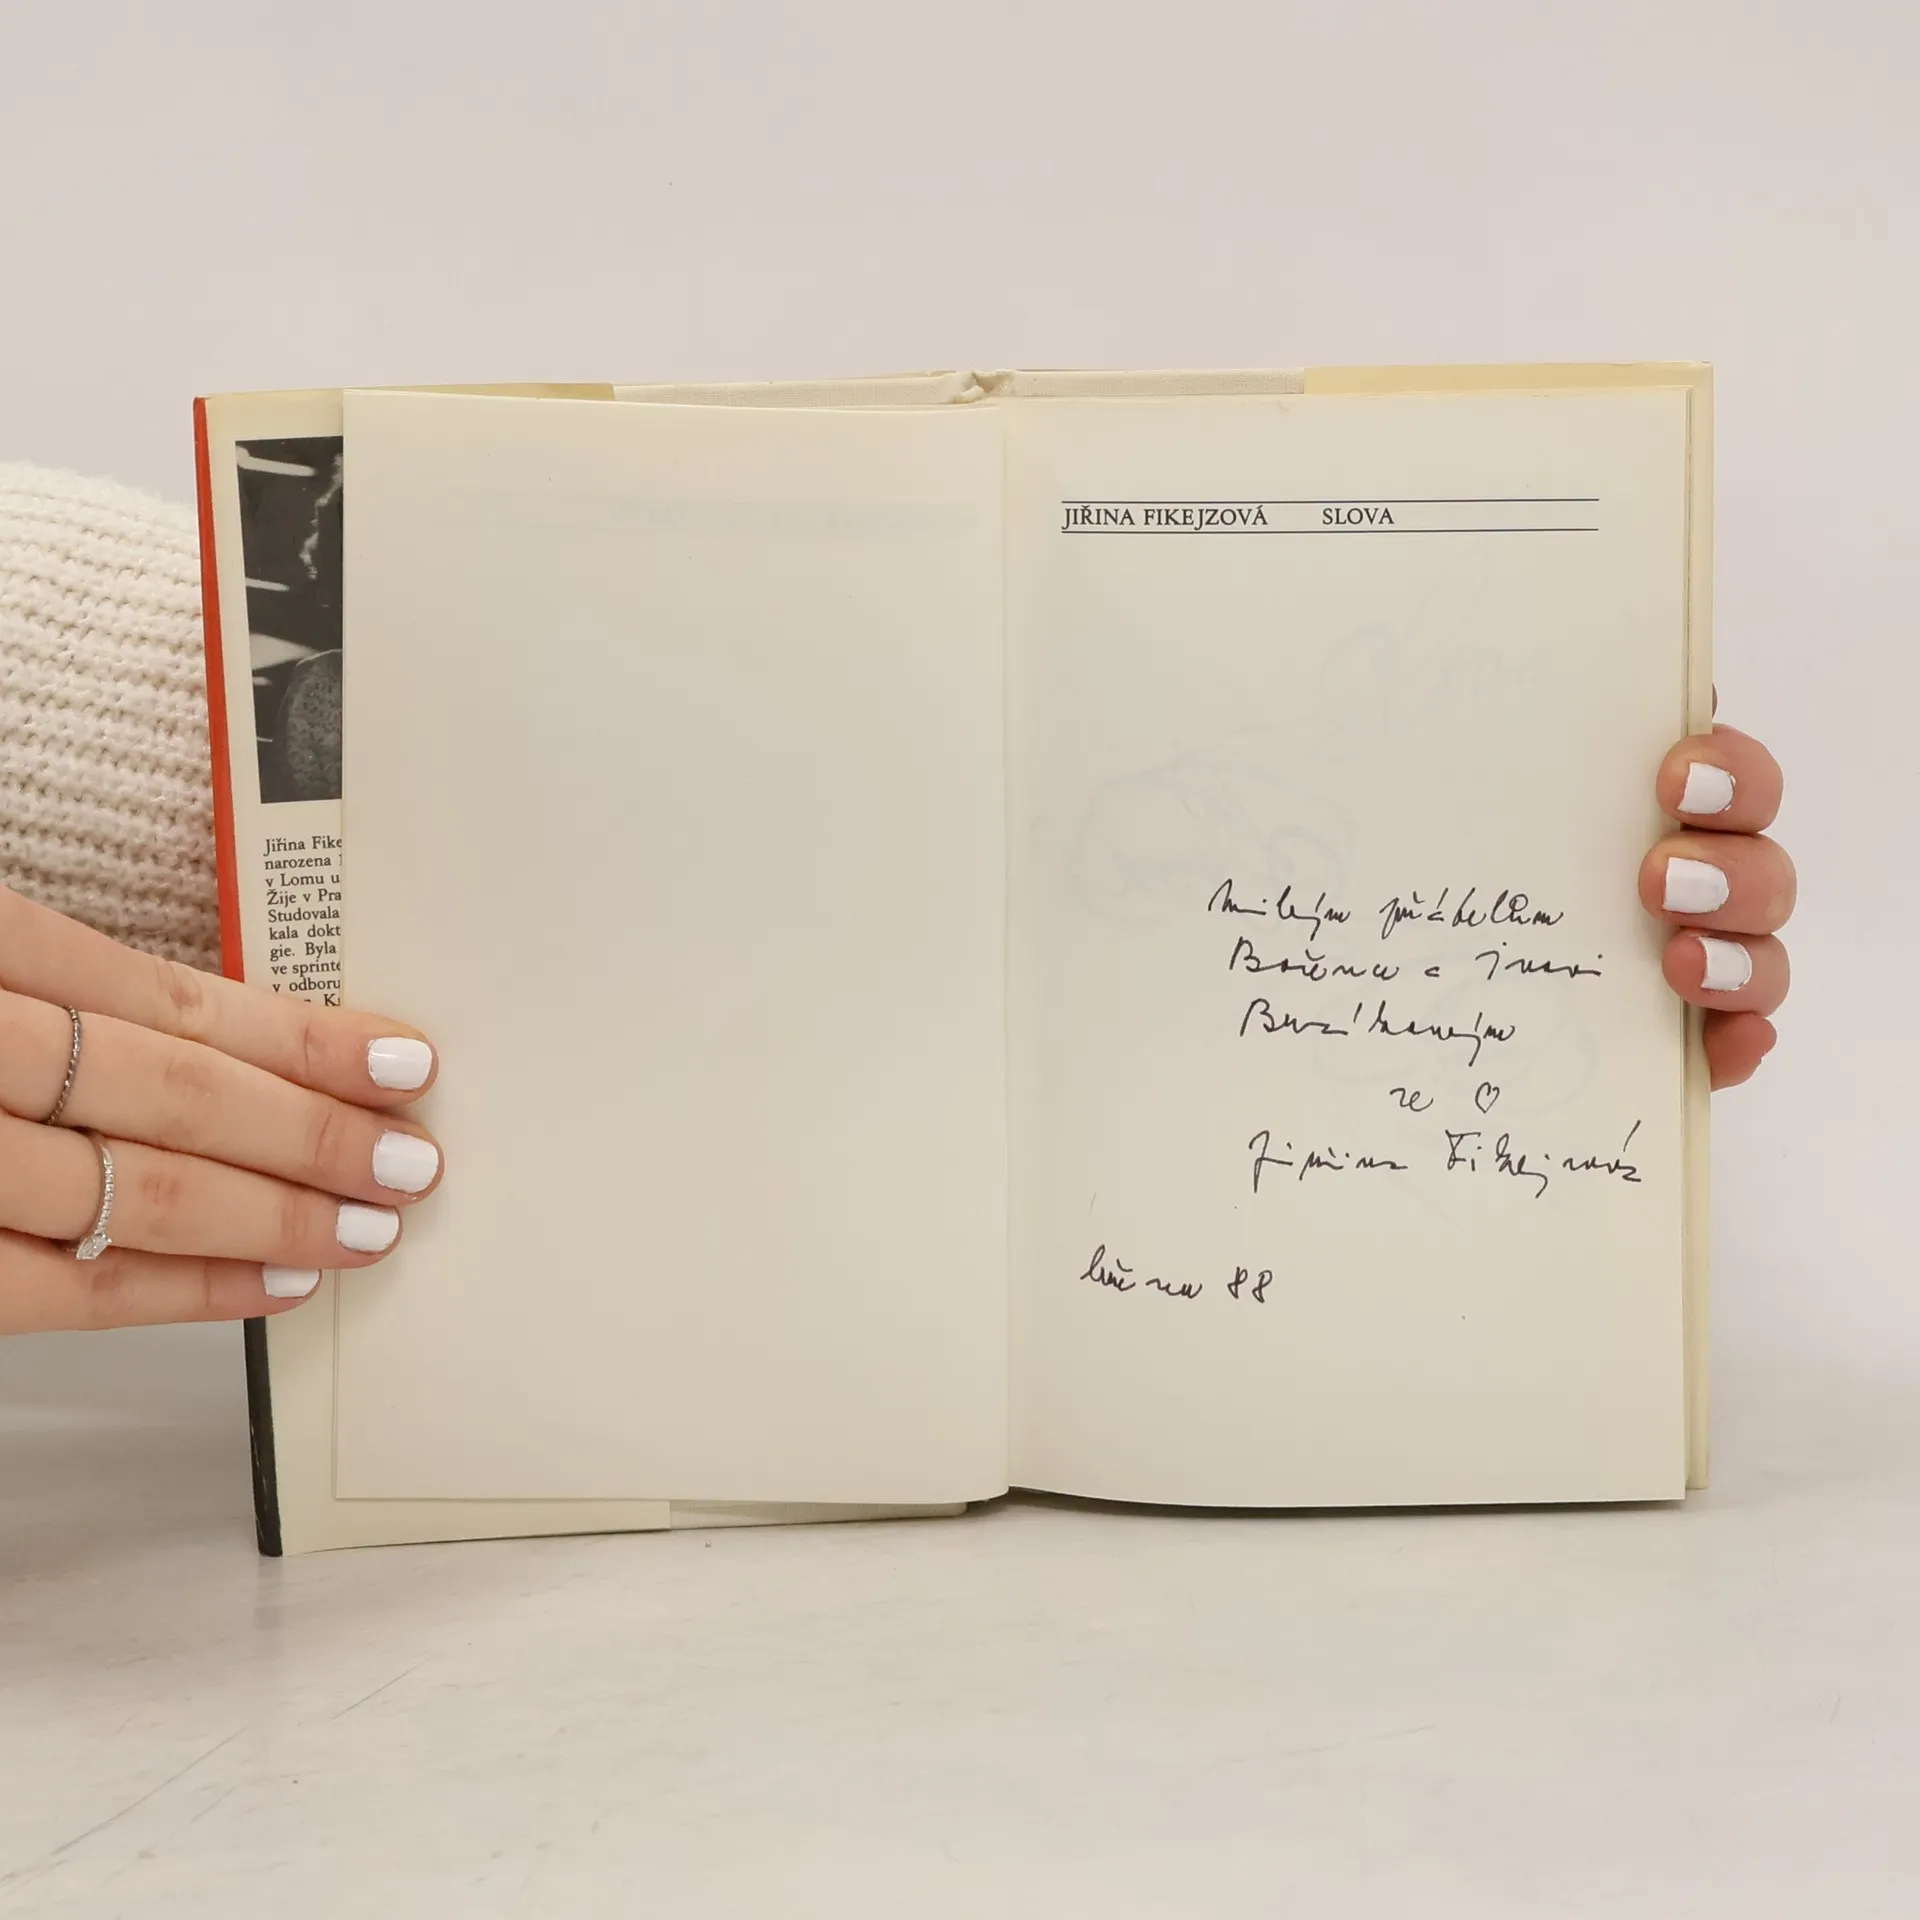 Jiřina Fike
narozena
v Lomu u
Žije v Pra
Studovala
kala dokt
gie. Byla
ve sprinte
v odboru
JIŘINA FIKEJZOVÁ SLOVA
milým přátelům
Božence a
ze ♡
Jiřina Fikejzová
března 88